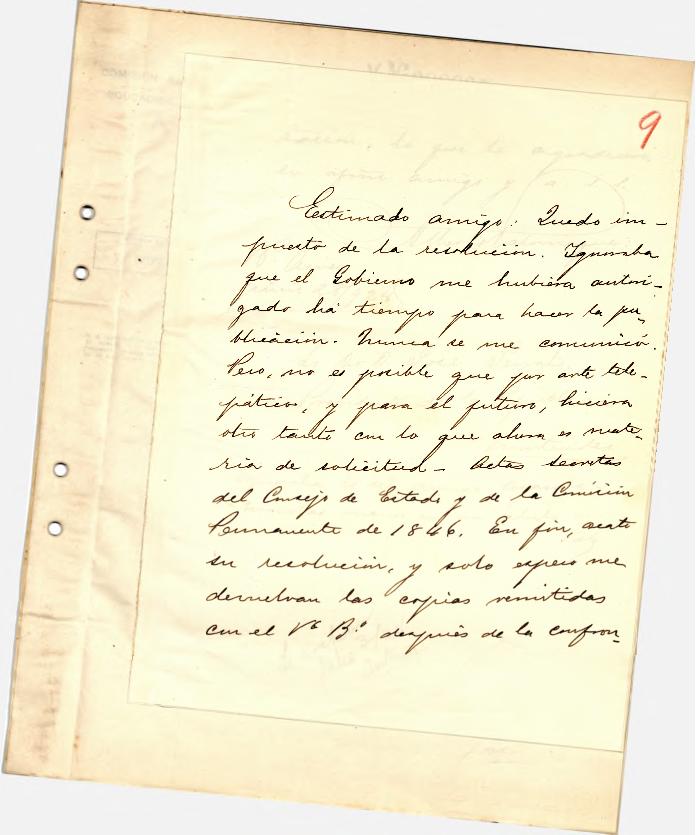 9
Estimado amigo: Quedo im-
puesto de la resolución. Ignoraba
que el Gobierno me hubiera autori-
zado há tiempo para hacer la pu-
blicación. Nunca se me comunicó.
Pero, no es posible que por arte tele-
pático, y para el futuro, hiciera
otro tanto con lo que ahora es mate-
ria de solicitud - Actas secretas
del Consejo de Estado y de la Comisión
Permanente de 1846. En fin, acato
su resolución, y solo espero me
devuelvan las copias remitidas
con el Vº Bº después de la confron-